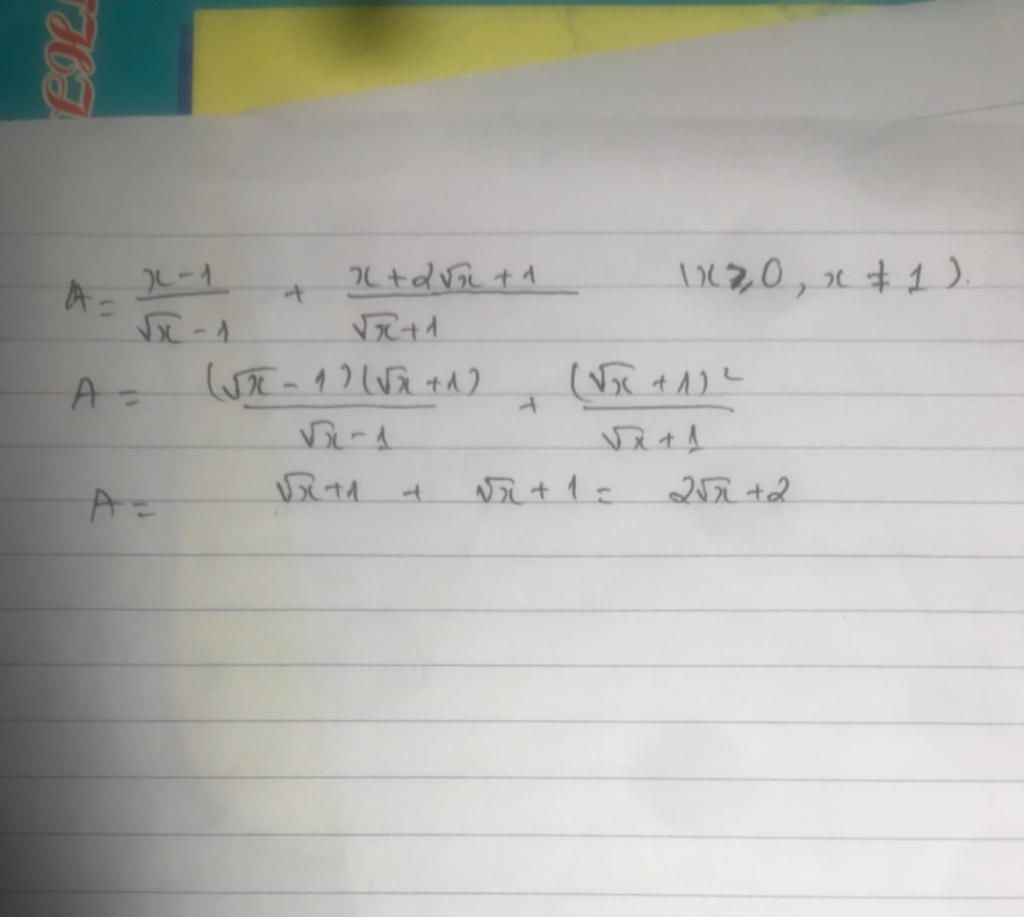 LHL
A = \frac{x-1}{\sqrt{x}-1} + \frac{x+2\sqrt{x}+1}{\sqrt{x}+1} (x ⩾ 0, x ≠ 1).
A = \frac{(\sqrt{x}-1)(\sqrt{x}+1)}{\sqrt{x}-1} + \frac{(\sqrt{x}+1)^2}{\sqrt{x}+1}
A = \sqrt{x}+1 + \sqrt{x}+1 = 2\sqrt{x}+2